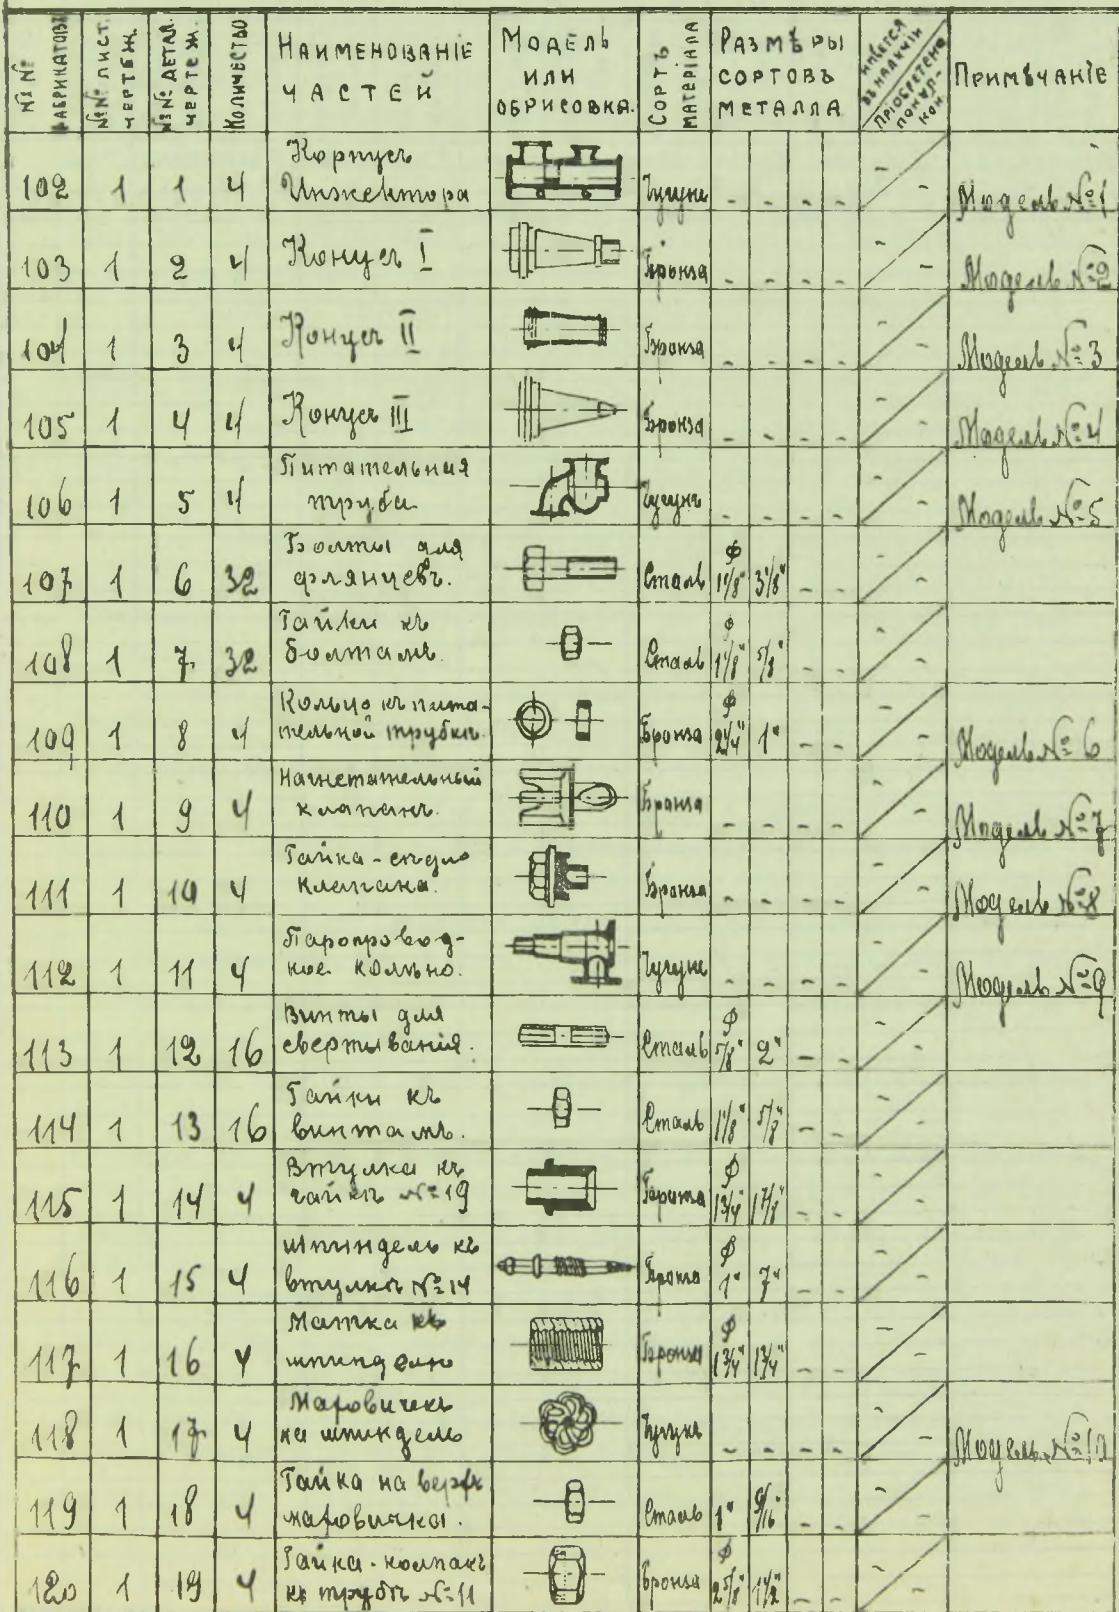 №№ ФАБРИКАТОВЪ
№№ ЛИСТ. ЧЕРТЕЖ.
№№ ДЕТАЛ. ЧЕРТЕЖ.
КОЛИЧЕСТВО
НАИМЕНОВАНІЕ ЧАСТЕЙ
МОДЕЛЬ ИЛИ ОБРИСОВКА.
СОРТЪ МАТЕРІАЛА
РАЗМѢРЫ СОРТОВЪ МЕТАЛЛА
ИМѢЕТСЯ ВЪ НАЛИЧІИ
ПРІОБРЕТЕНО
ПРИМѢЧАНІЕ
102 1 1 4 Корпусъ Инжектора Чугунъ - - - - - - Модель №1
103 1 2 4 Конусъ I Бронза - - - - - - Модель №2
104 1 3 4 Конусъ II Бронза - - - - - - Модель №3
105 1 4 4 Конусъ III Бронза - - - - - - Модель №4
106 1 5 4 Питательная труба Чугунъ - - - - - - Модель №5
107 1 6 32 Болты для флянцевъ. Сталь ф 1 1/8" 3 1/8" - - - -
108 1 7 32 Гайки къ болтамъ. Сталь ф 1 1/8" 5/8" - - - -
109 1 8 4 Кольцо къ питательной трубкѣ. Бронза ф 2 1/4" 1" - - - - Модель №6
110 1 9 4 Нагнетательный клапанъ. Бронза - - - - - - Модель №7
111 1 10 4 Гайка-сѣдло клапана. Бронза - - - - - - Модель №8
112 1 11 4 Паропроводное колѣно. Чугунъ - - - - - - Модель №9
113 1 12 16 Винты для свертыванія. Сталь ф 5/8" 2" - - - -
114 1 13 16 Гайки къ винтамъ. Сталь 1 1/8" 5/8" - - - -
115 1 14 4 Втулка къ гайкѣ №19 ф 1 3/4" 1 7/8" - - - -
116 1 15 4 Шпиндель къ втулкѣ №14 Бронза ф 1" 7" - - - -
117 1 16 4 Матка къ шпинделю Бронза ф 1 3/4" 1 3/4" - - - -
118 1 17 4 Маховичекъ на шпиндель Чугунъ - - - - - - Модель №10
119 1 18 4 Гайка на верхъ маховичка. Сталь 1" 9/16" - - - -
120 1 19 4 Гайка-колпакъ къ трубѣ №11 Бронза ф 2 5/8" 1 1/2" - - - -